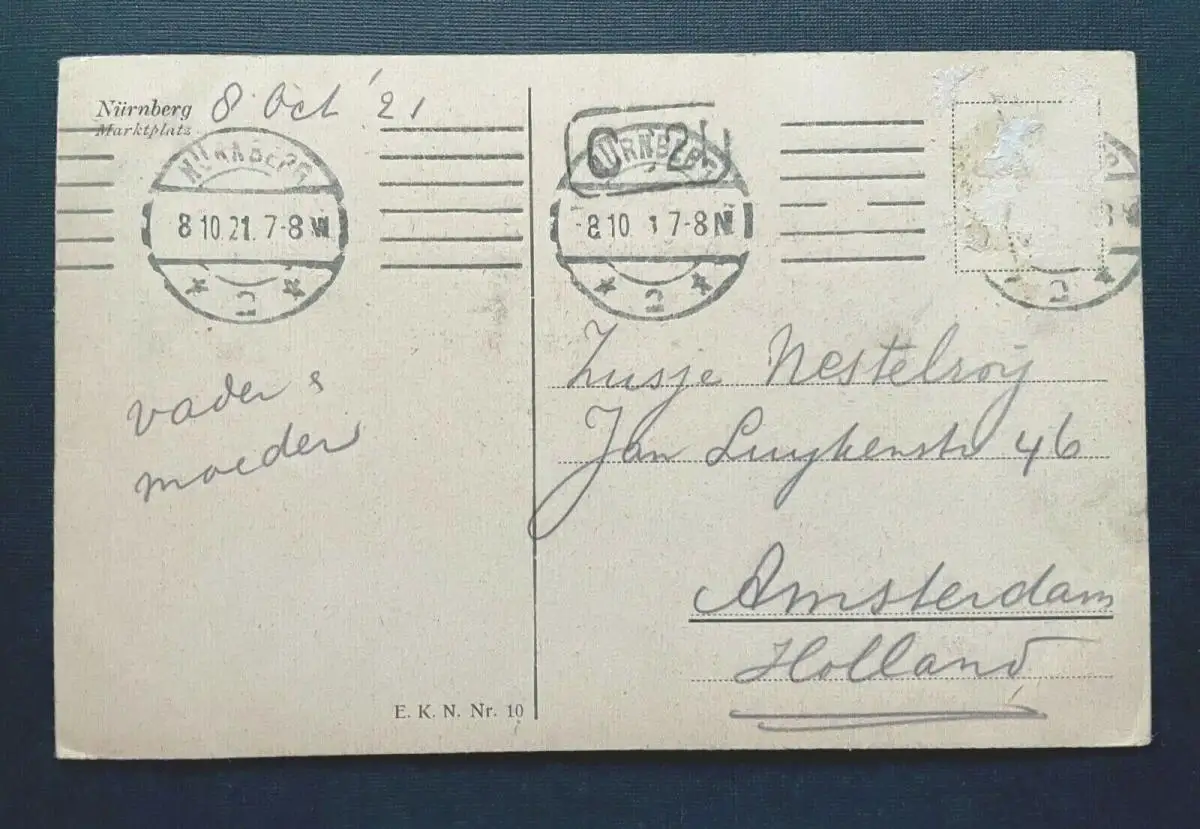 Nürnberg 8 Oct '21
Marktplatz
NÜRNBERG
8 10.21. 7-8 N
* 2 *
NÜRNBERG
8 10 1 7-8 N
* 2 *
vader &
moeder
Zusje Nestelroij
Jan Luykenstr 46
Amsterdam
Holland
E. K. N. Nr. 10